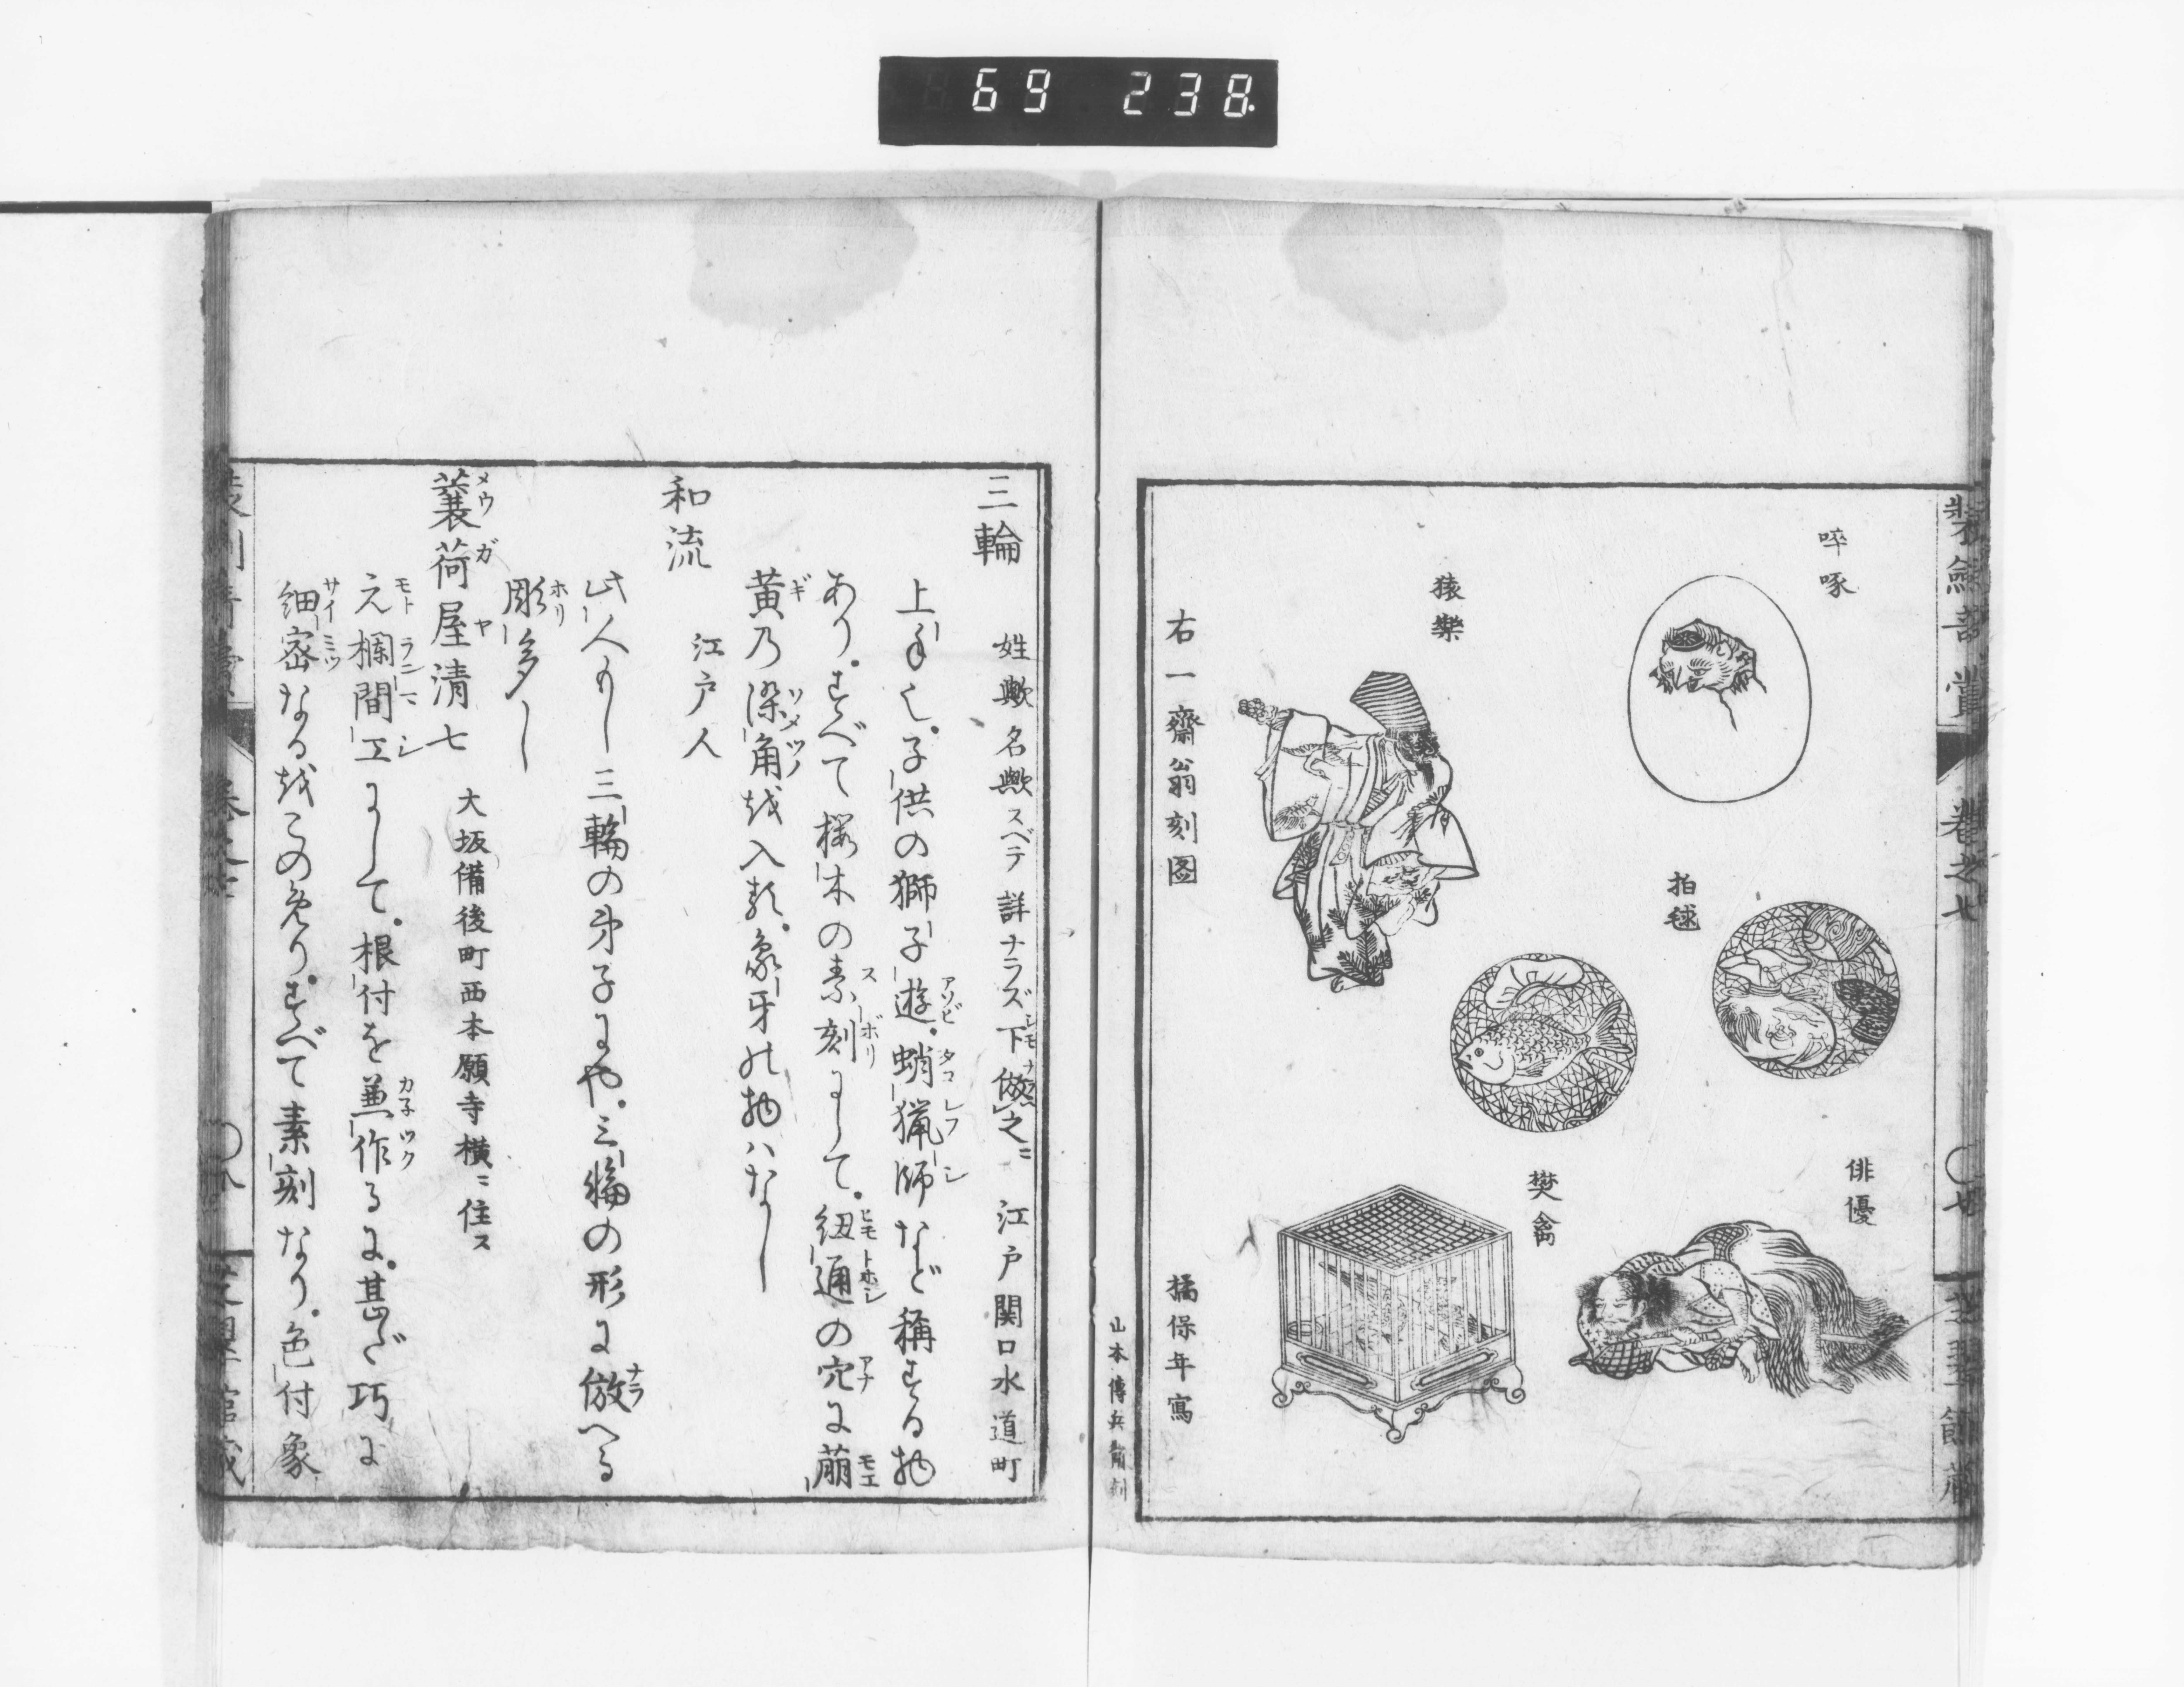 69 238
装劍竒賞
巻之七
〇七
啐啄
猿樂
拍毬
俳優
樊禽
右一齋翁刻图
橘保年寫
山本傳兵衞刻
三輪 姓歟名歟スベテ詳ナラズ下倣之ニ 江戸関口水道町
上手也。子供の獅子遊。蛸猟師など称する物
あり。すべて桜木の素刻にして。紐通の穴に萠
黄乃染角越入る。象牙の物ハなし
和流 江戸人
此人もし三輪の弟子にや。三輪の形に倣へる
彫多し
蓑荷屋清七 大坂備後町西本願寺横ニ住ス
元欄間工にして。根付を兼作るに。甚だ巧に
細密なる越この免り。すべて素刻なり。色付象